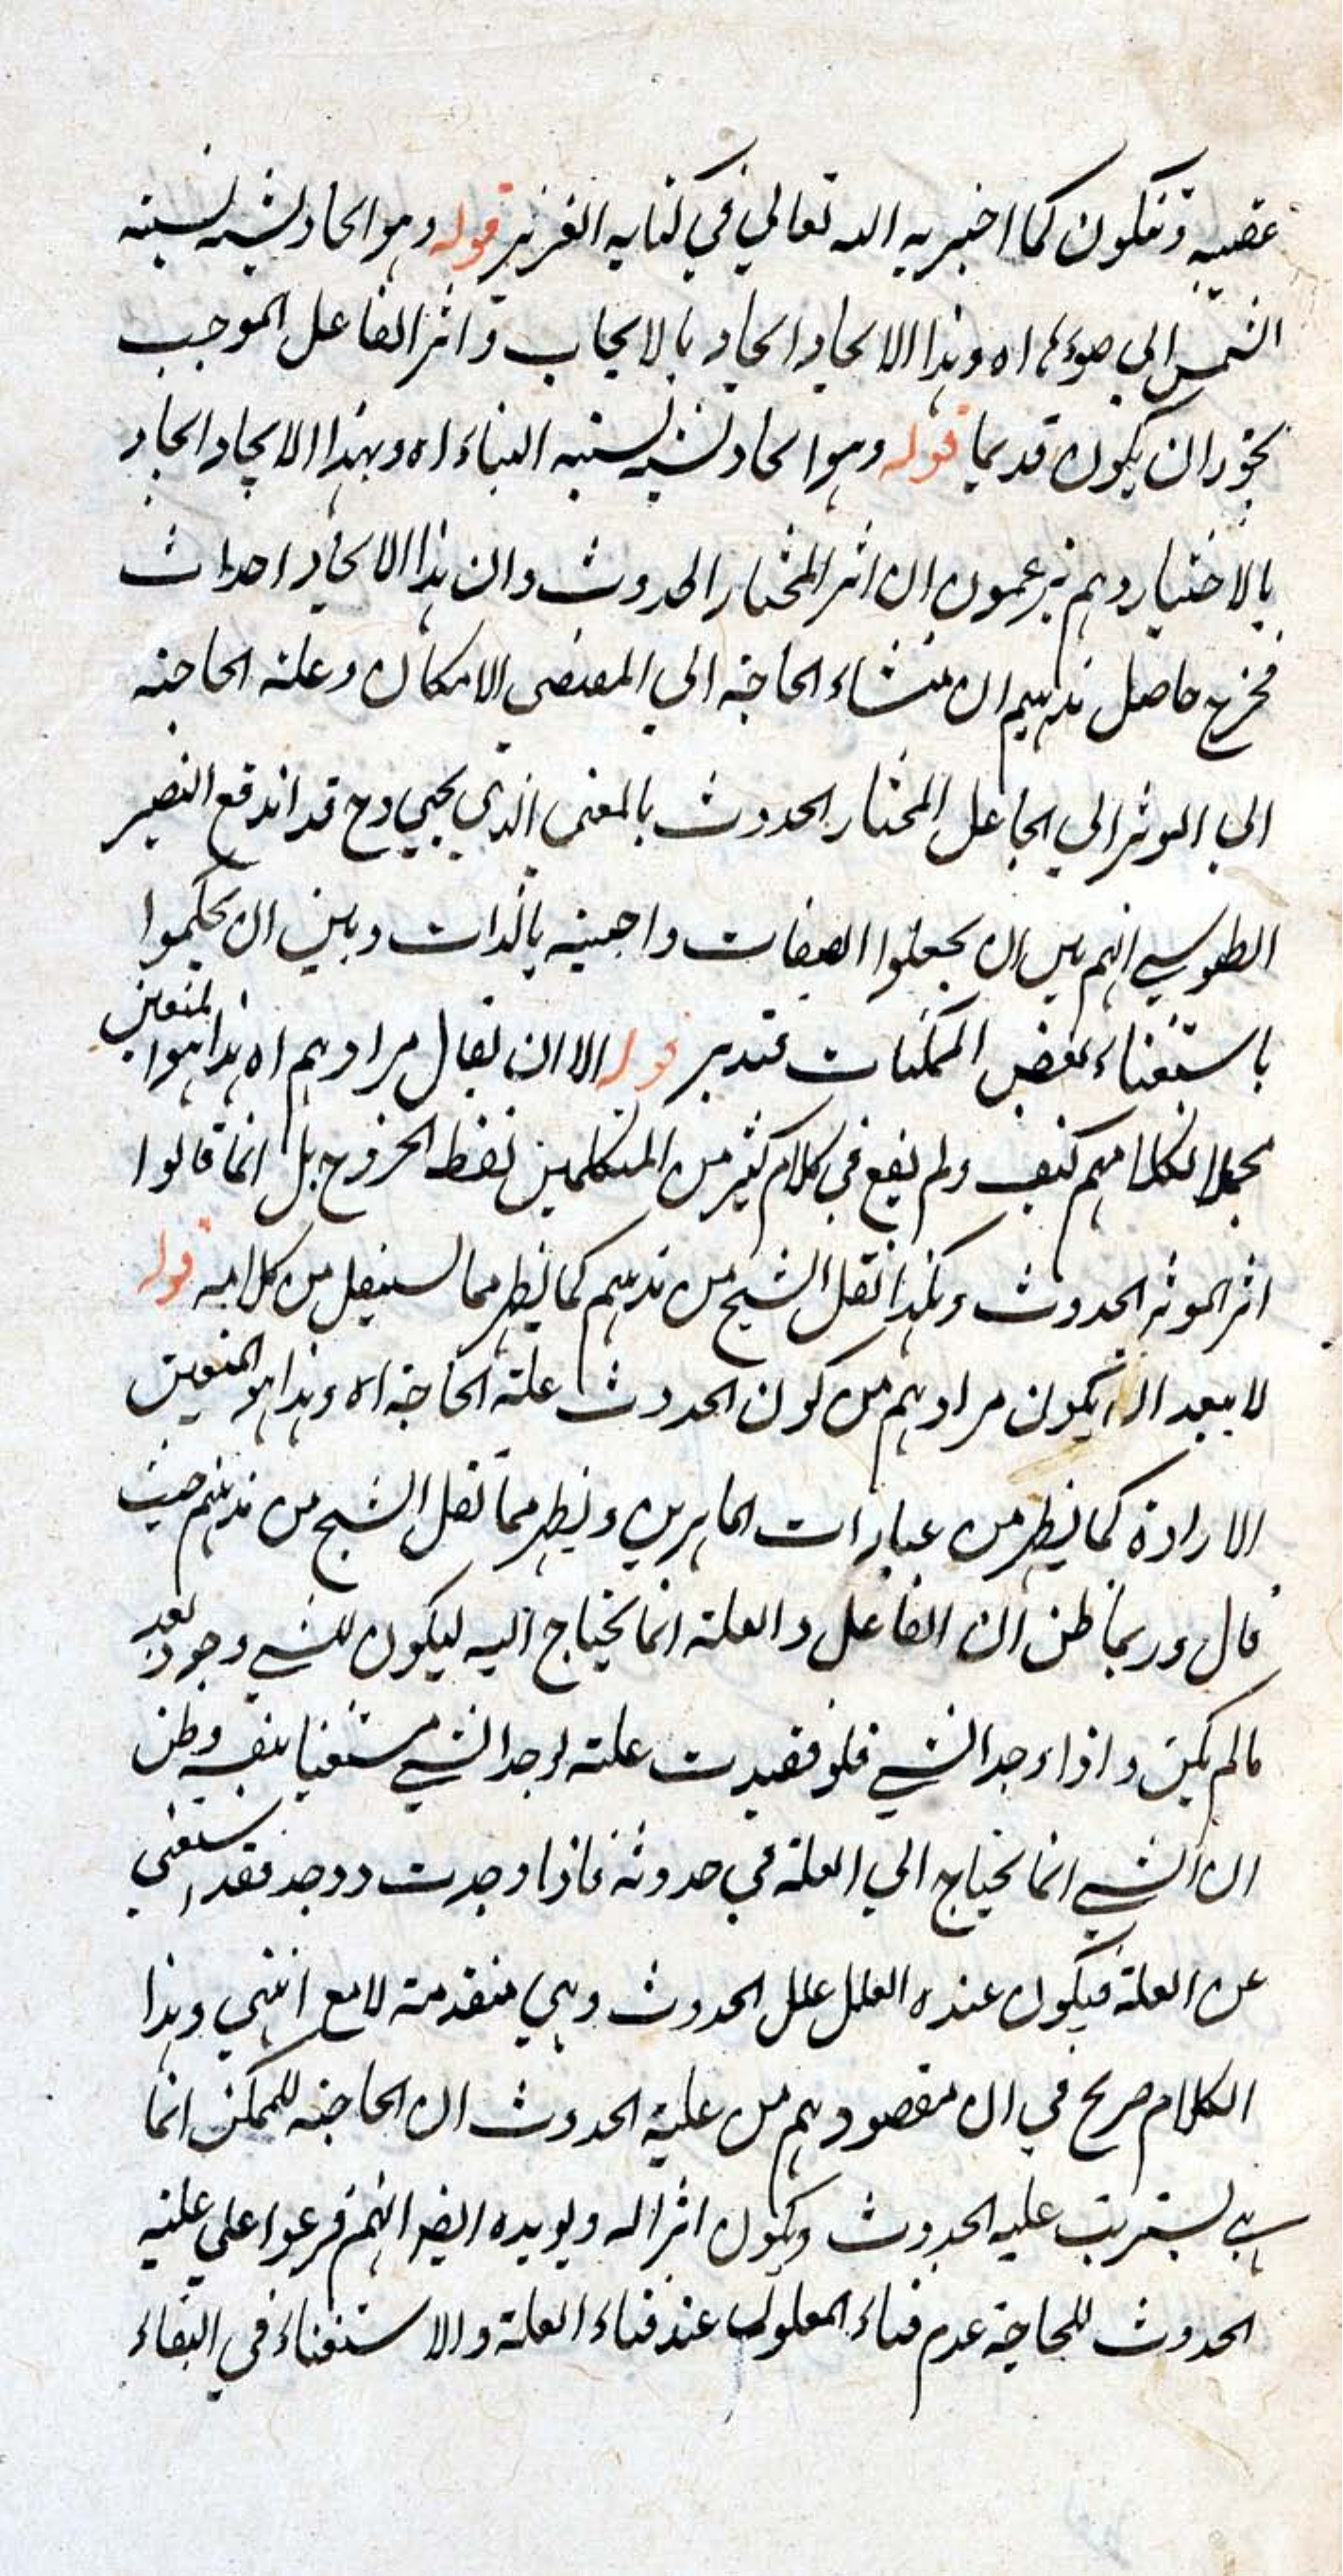 عقبيه وتكون كما اخبر به الله تعالي في كتابه العزيز قوله وهو ايجاد يشبه نسبته
الشمس الي ضوءها اه وهذا الايجاد ايجاد بالايجاب واثر الفاعل الموجب
يجوز ان يكون قديما قوله وهو ايجاد يشبه نسبته البناء اه وبهذا الايجاد ايجاد
بالاختيار وهم يزعمون ان اثر المختار الحدوث وان هذا الايجاد احداث
فخرج حاصل مذهبهم ان منشاء الحاجة الي المقتضي الامكان وعلة الحاجته
الي الموثر الي الجاعل المختار الحدوث بالمعني الذي يجيي وح قد اندفع النصير
الطوسي انهم بين ان يجعلوا الصفات واجبته بالذات وبين ان يحكموا
باستغناء بعض الممكنات فتدبر قوله الا ان يقال مرادهم اه هذا هو المتعين
محملا لكلامهم كيف ولم يقع في كلام كثير من المتكلمين لفظ الخروج بل انما قالوا
اثر الموثر الحدوث وهكذا نقل الشيخ من مذهبهم كما يظهر مما سينقل من كلامه قوله
لا يبعد ان يكون مرادهم من كون الحدوث علة الحاجة اه وهذا هو المتعين
الارادة كما يظهر من عبارات الماهرين ويظهر مما نقل الشيخ من مذهبهم حيث
قال وربما ظن ان الفاعل والعلة انما يحتاج اليه ليكون للشيي وجود بعد
مالم يكن واذا وجد الشيي فلو فقدت علته لوجد الشيي مستغنيا بنفسه وظن
ان الشيي انما يحتاج الي العلة في حدوثه فاذا وجدت ووجد فقد استغني
عن العلة فيكون عنده العلل علل الحدوث وهي متقدمة لا مع انتهي وهذا
الكلام صريح في ان مقصودهم من علية الحدوث ان الحاجته للممكن انما
هي ليترتب عليه الحدوث ويكون اثرا له ويويده ايضا انهم فرعوا علي علية
الحدوث للحاجة عدم فناء المعلول عند فناء العلة والاستغناء في البقاء